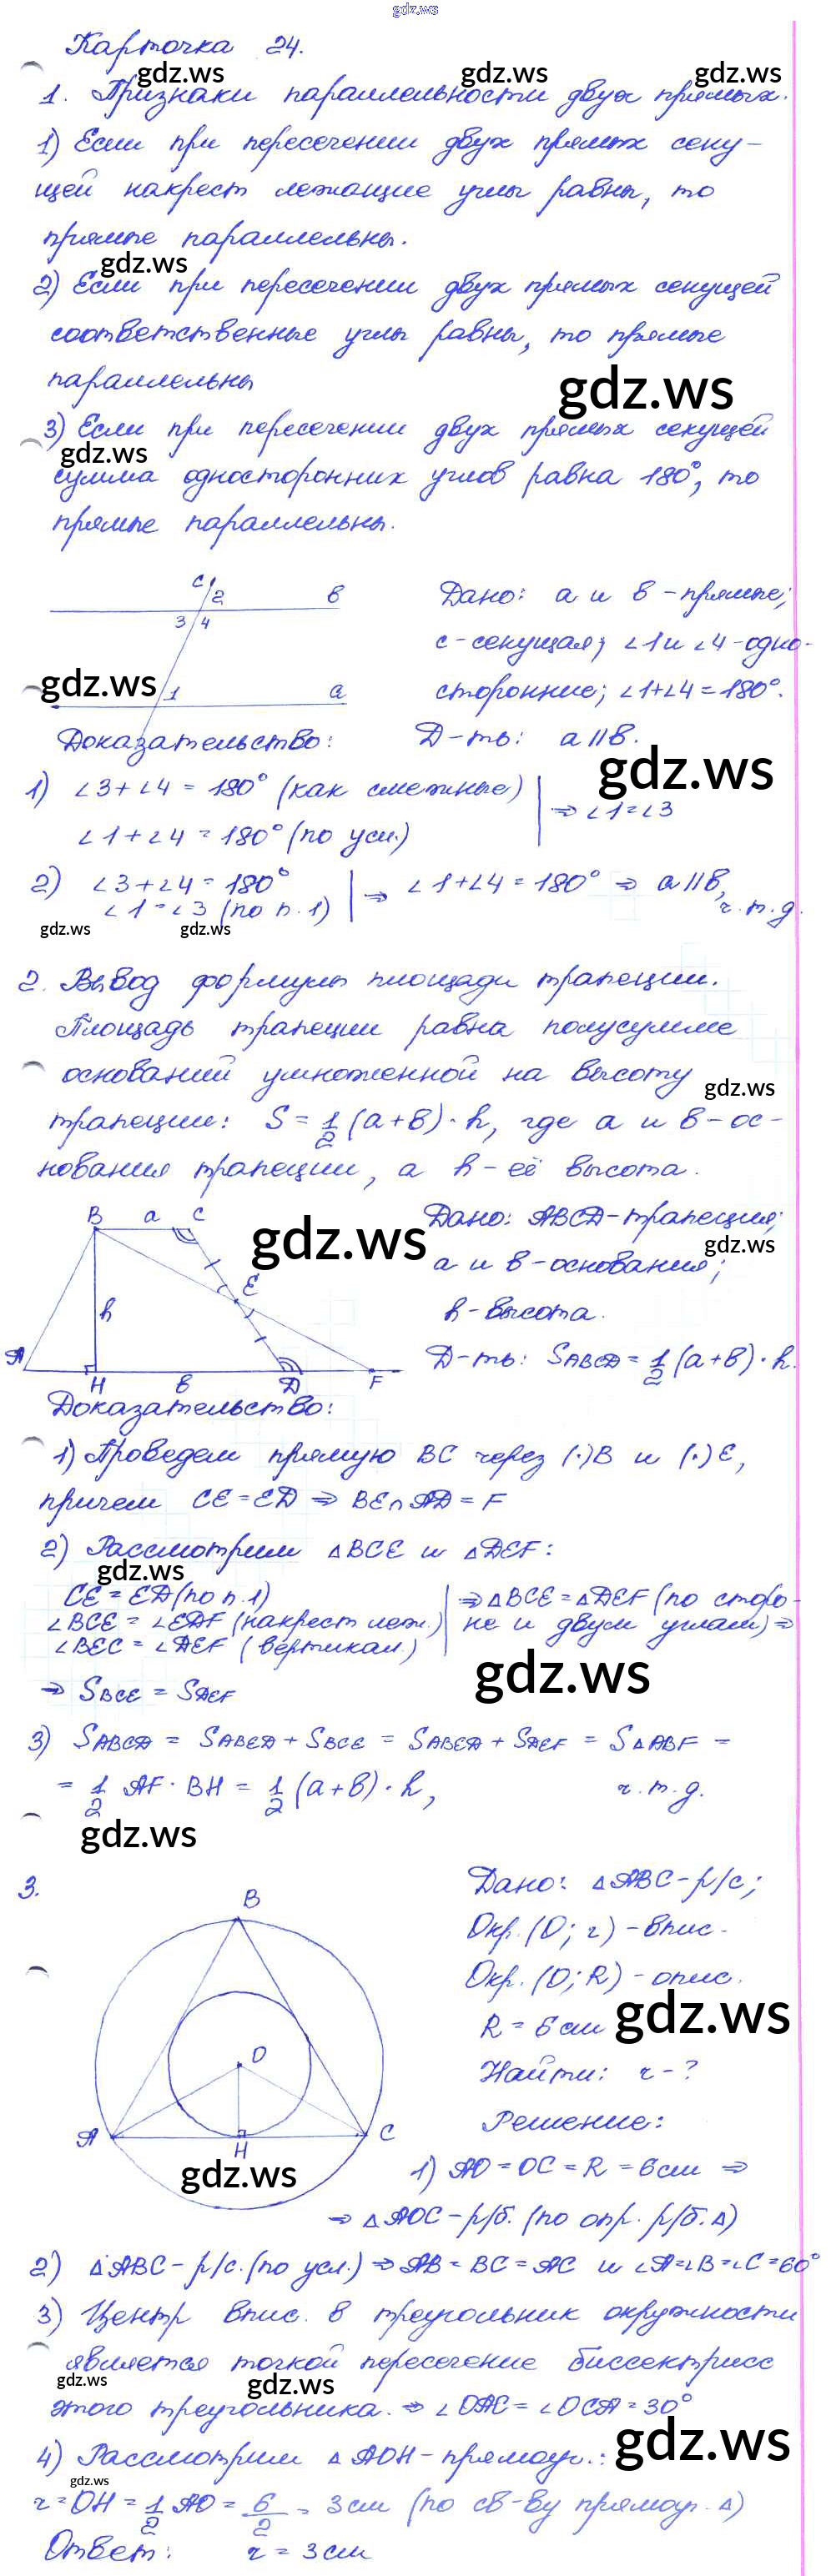 gdz.ws
Карточка 24.
gdz.ws gdz.ws gdz.ws
1. Признаки параллельности двух прямых.
1) Если при пересечении двух прямых секу-
щей накрест лежащие углы равны, то
прямые параллельны.
gdz.ws
2) Если при пересечении двух прямых секущей
соответственные углы равны, то прямые
параллельны
gdz.ws
3) Если при пересечении двух прямых секущей
gdz.ws
сумма односторонних углов равна 180°, то
прямые параллельны.
c 2 в
3 4
1 a
gdz.ws
Дано: а и в - прямые;
с - секущая; ∠1 и ∠4 - одно-
сторонние; ∠1+∠4=180°.
Д-ть: a∥в.
Доказательство:
gdz.ws
1) ∠3+∠4=180° (как смежные) | ⇒ ∠1=∠3
∠1+∠4=180° (по усл.)
2) ∠3+∠4=180° | ⇒ ∠1+∠4=180° ⇒ a∥в,
∠1=∠3 (по п.1) ч.т.д.
gdz.ws gdz.ws
2. Вывод формулы площади трапеции.
Площадь трапеции равна полусумме
оснований умноженной на высоту
gdz.ws
трапеции: S = 1/2 (a+в)·h, где а и в - ос-
нования трапеции, а h - её высота.
B a C
E
h
A H в D F
gdz.ws
Дано: ABCD - трапеция;
gdz.ws
а и в - основания;
h - высота.
Д-ть: SABCD = 1/2 (a+в)·h.
Доказательство:
1) Проведем прямую BC через (·)B и (·)E,
причем CE=ED ⇒ BE∩AD=F
2) Рассмотрим △BCE и △DEF:
gdz.ws
CE=ED (по п.1) | ⇒ △BCE=△DEF (по сторо-
∠BCE=∠EDF (накрест леж.) | не и двум углам) ⇒
∠BEC=∠DEF (вертикал.)
gdz.ws
⇒ SBCE = SDEF
3) SABCD = SABED + SBCE = SABED + SDEF = S△ABF =
= 1/2 AF·BH = 1/2 (a+в)·h, ч.т.д.
gdz.ws
3.
B
O
A H C
gdz.ws
Дано: △ABC - р/с;
Окр. (O; r) - впис.
Окр. (O; R) - опис.
R = 6 см
gdz.ws
Найти: r - ?
Решение:
1) AO=OC=R=6см ⇒
⇒ △AOC - р/б. (по опр. р/б. △)
2) △ABC - р/с. (по усл.) ⇒ AB=BC=AC и ∠A=∠B=∠C=60°
3) Центр впис. в треугольник окружности
является точкой пересечение биссектрисс
gdz.ws gdz.ws
этого треугольника. ⇒ ∠OAC=∠OCA=30°
gdz.ws
4) Рассмотрим △AOH - прямоуг.:
gdz.ws
r=OH=1/2 AO=6/2=3см (по св-ву прямоуг. △)
Ответ: r = 3 см